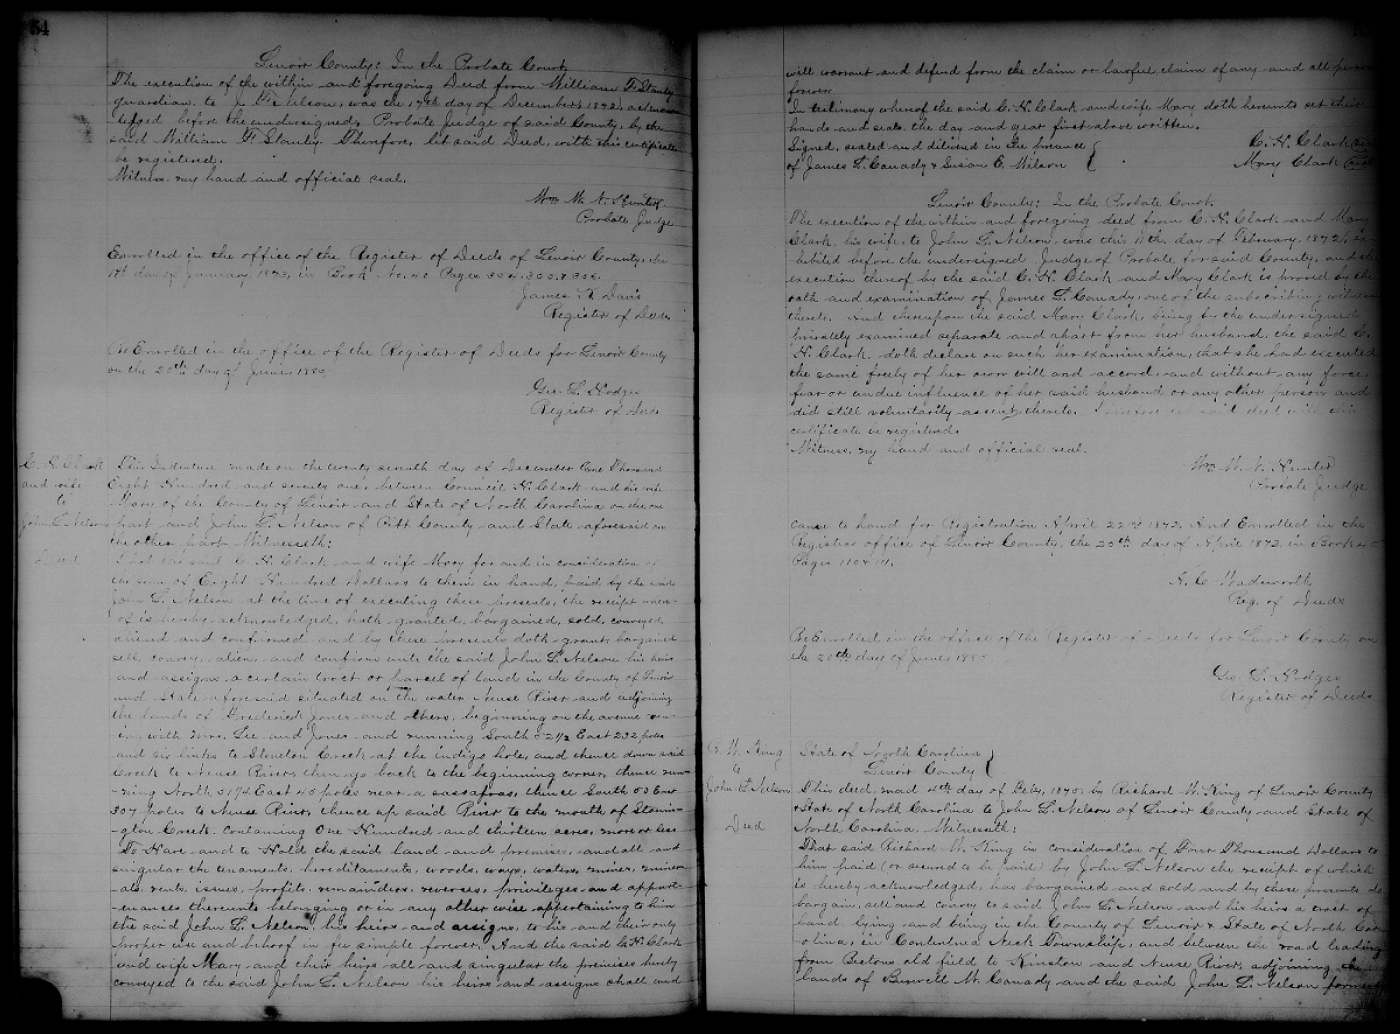 54
Lenoir County: In the Probate Court
The execution of the within and foregoing Deed from William F. Stanly
guardian to J. L. Nelson, was the 17th day of December 1872, acknow-
ledged before the undersigned, Probate Judge of said County, by the
said William F. Stanly. Therefore, let said Deed, with this certificate
be registered.
Witness my hand and official seal.
Wm W. N. Hunter
Probate Judge
Enrolled in the office of the Register of Deeds of Lenoir County, the
day of January 1873, in Book No. Pages 304, 305 & 306.
James Davis
Register of Deeds
Re Enrolled in the office of the Register of Deeds for Lenoir County
on the 20th day of June, 1880
Geo. L. Hodges
Register of Deeds
C. H. Clark
and wife
to
John L. Nelson
Deed
This Indenture made on the twenty seventh day of December One Thousand
Eight Hundred and seventy one, between Council H. Clark and his wife
Mary of the County of Lenoir and State of North Carolina on the one
part and John L. Nelson of Pitt County and State aforesaid on
the other part Witnesseth:
That the said C. H. Clark and wife Mary for and in consideration of
the sum of Eight Hundred Dollars to them in hand, paid by the said
John L. Nelson at the time of executing these presents, the receipt where-
of is hereby acknowledged, hath granted, bargained, sold, conveyed,
aliened and confirmed and by these presents doth grant, bargain
sell, convey, alien, and confirm unto the said John L. Nelson his heirs
and assigns a certain tract or parcel of land in the County of Lenoir
and State aforesaid situated on the water Neuse River and adjoining
the lands of Frederick Jones and others, beginning on the avenue run-
ing with Mrs. Lee and Jones and running South 52 1/2 East 232 poles
and six links to Stonton Creek at the indigo hole, and thence down said
Creek to Neuse River, then go back to the beginning corner, thence run-
ning North East 45 poles near a sassafras, thence South 53 East
307 poles to Neuse River, thence up said River to the mouth of Stonin-
gton Creek. Containing One Hundred and thirteen acres, more or less
To Have and to Hold the said land and premises, and all and
singular the tenaments, hereditaments, woods, ways, waters, mines, miner-
als, rents, issues, profits, remainders, reverses, privileges and appurt-
enances thereunto belonging or in any other wise appertaining to him
the said John L. Nelson, his heirs and assigns, to his and their only
proper use and behoof in fee simple forever. And the said C. H. Clark
and wife Mary and their heirs all and singular the premises hereby
conveyed to the said John L. Nelson his heirs and assigns shall and
will warrant and defend from the claim or lawful claim of any and all persons
forever.
In testimony whereof the said C. H. Clark and wife Mary doth hereunto set their
hands and seals the day and year first above written.
Signed, sealed and delivered in the presence
of James L. Canady & Susan C. Wilson
C. H. Clark
Mary Clark
Lenoir County: In the Probate Court.
The execution of the within and foregoing deed from C. H. Clark and Mary
Clark, his wife, to John L. Nelson, was this 11th day of February, 1872, ex-
hibited before the undersigned Judge of Probate for said County, and the
execution thereof by the said C. H. Clark and Mary Clark is proved by the
oath and examination of James L. Canady, one of the subscribing witness
thereto. And thereupon the said Mary Clark, being by the undersigned
privately examined separate and apart from her husband, the said C.
H. Clark, doth declare on such her examination, that she had executed
the same freely of her own will and accord, and without any force,
fear or undue influence of her said husband or any other person and
did still voluntarily assent thereto. Therefore let said deed with this
certificate be registered.
Witness, my hand and official seal.
Wm W. N. Hunter
Probate Judge
Came to hand for Registration April 22nd 1872. And Enrolled in the
Registers office of Lenoir County, the 25th day of April 1872, in Book
Pages 110 &
Wadsworth
Reg. of Deeds
Re Enrolled in the office of the Register of Deeds for Lenoir County on
the 20th day of June 1880
Geo. L. Hodges
Register of Deeds
R. W. King
to
John L. Nelson
Deed
State of North Carolina
Lenoir County
This deed, mad 4th day of Feby, 1875, by Richard W. King of Lenoir County
& State of North Carolina to John L. Nelson of Lenoir County and State of
North Carolina, Witnesseth:
That said Richard W. King in consideration of Four Thousand Dollars to
him paid (or secured to be paid) by John L. Nelson the receipt of which
is hereby acknowledged, has bargained and sold and by these presents do
bargain, sell and convey to said John L. Nelson and his heirs a tract of
land lying and being in the County of Lenoir & State of North Car-
olina, in Contentnea Neck Township, and between the road leading
from Bistons old field to Kinston and Neuse River, adjoining the
lands of Burwell W. Canady and the said John L. Nelson